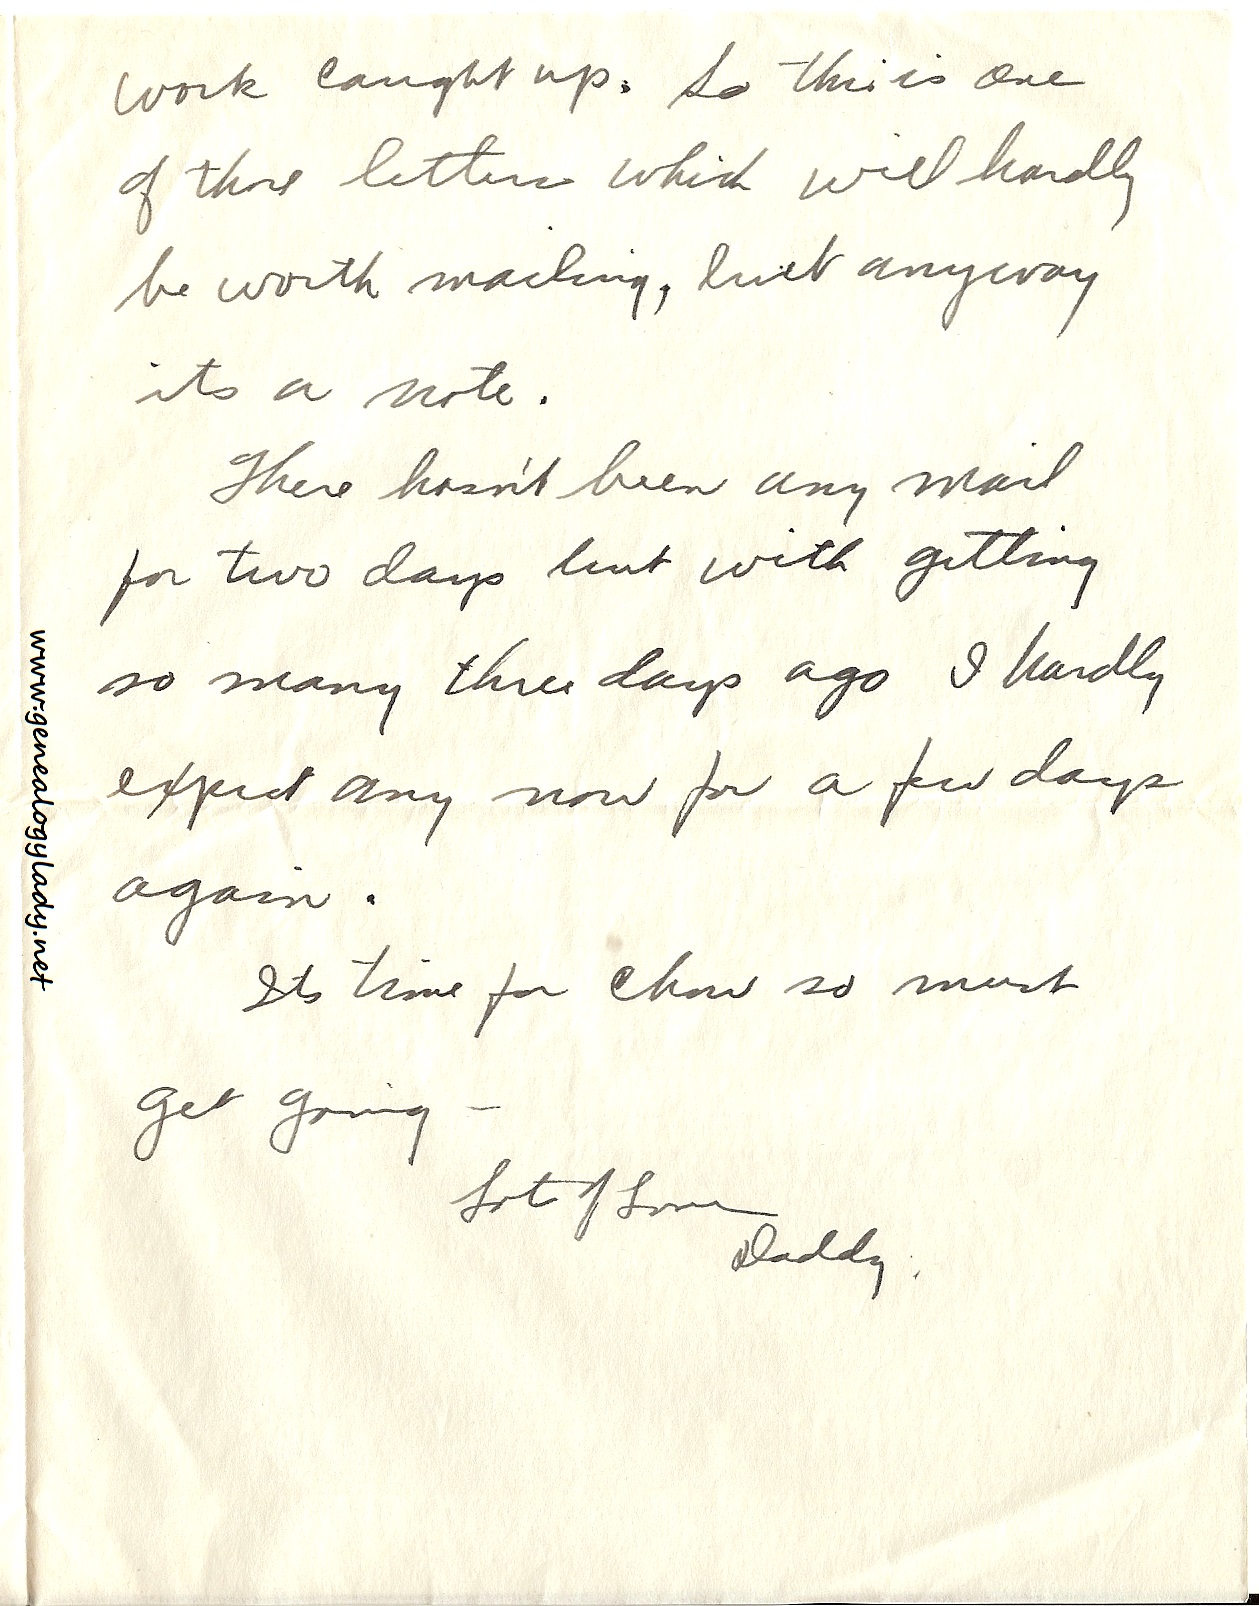 work caught up. So this is one
of those letters which will hardly
be worth mailing, but anyway
its a note.
There hasn't been any mail
for two days but with getting
so many three days ago I hardly
expect any now for a few days
again.
Its time for chow so must
get going —
Lots of Love
Daddy.
www.genealogylady.net